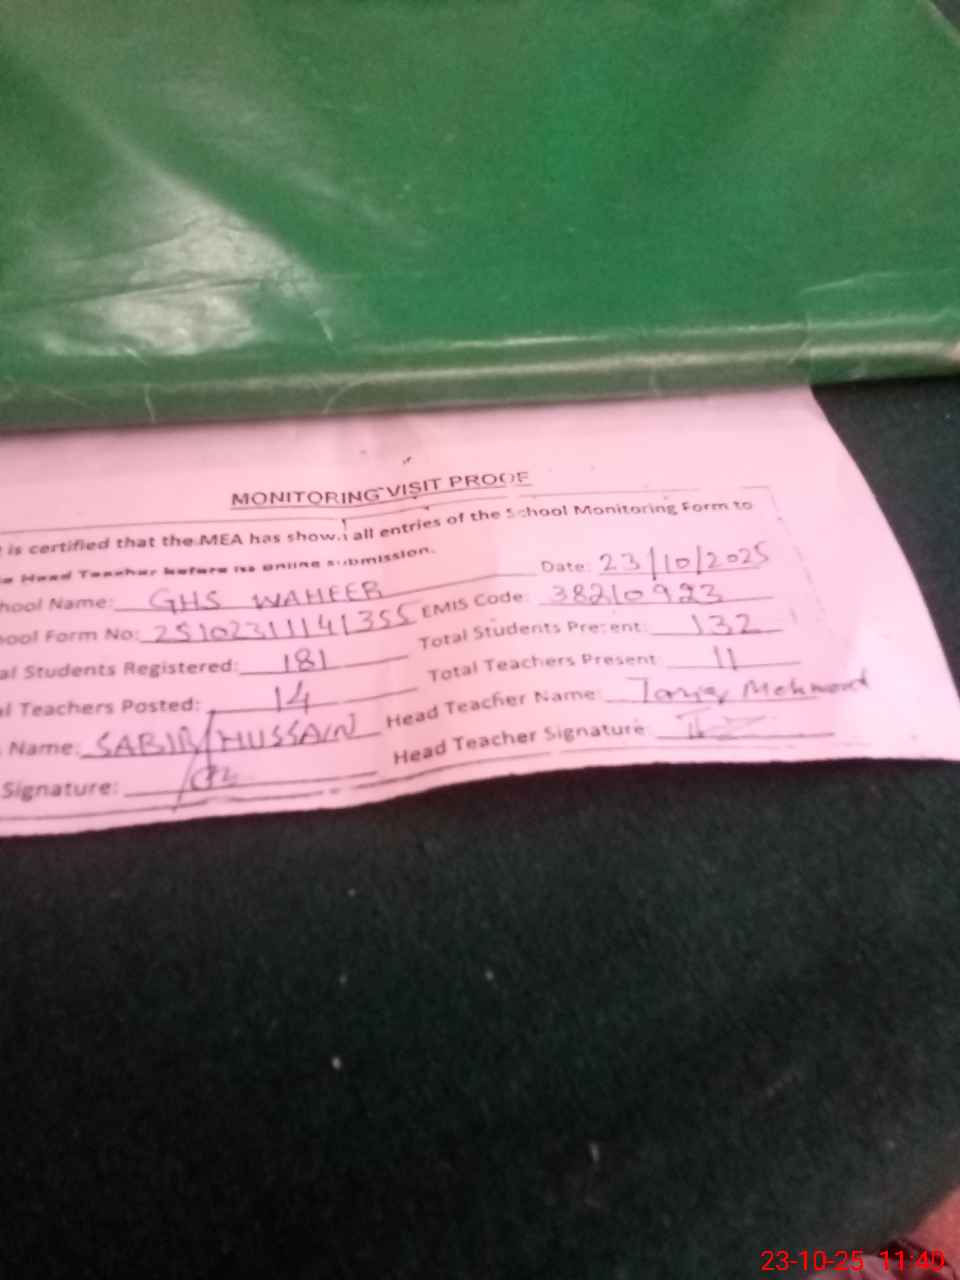 MONITORING VISIT PROOF
is certified that the MEA has shown all entries of the School Monitoring Form to
Head Teacher before its online submission.
Date: 23/10/2025
hool Name: GHS WAHEER
EMIS Code: 38210923
ool Form No: 25102311141355
Total Students Present: 132
al Students Registered: 181
Total Teachers Present: 11
l Teachers Posted: 14
Head Teacher Name: Mehmood
Name: SABIR HUSSAIN
Head Teacher Signature:
Signature:
23-10-25 11:40